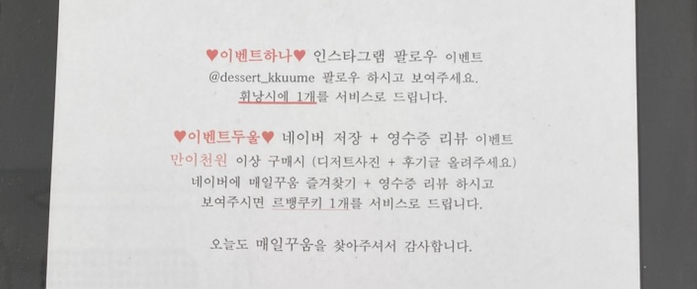 ♥이벤트하나♥ 인스타그램 팔로우 이벤트
@dessert_kkuume 팔로우 하시고 보여주세요.
휘낭시에 1개를 서비스로 드립니다.
♥이벤트두울♥ 네이버 저장 + 영수증 리뷰 이벤트
만이천원 이상 구매시 (디저트사진 + 후기글 올려주세요)
네이버에 매일꾸움 즐겨찾기 + 영수증 리뷰 하시고
보여주시면 르뱅쿠키 1개를 서비스로 드립니다.
오늘도 매일꾸움을 찾아주셔서 감사합니다.